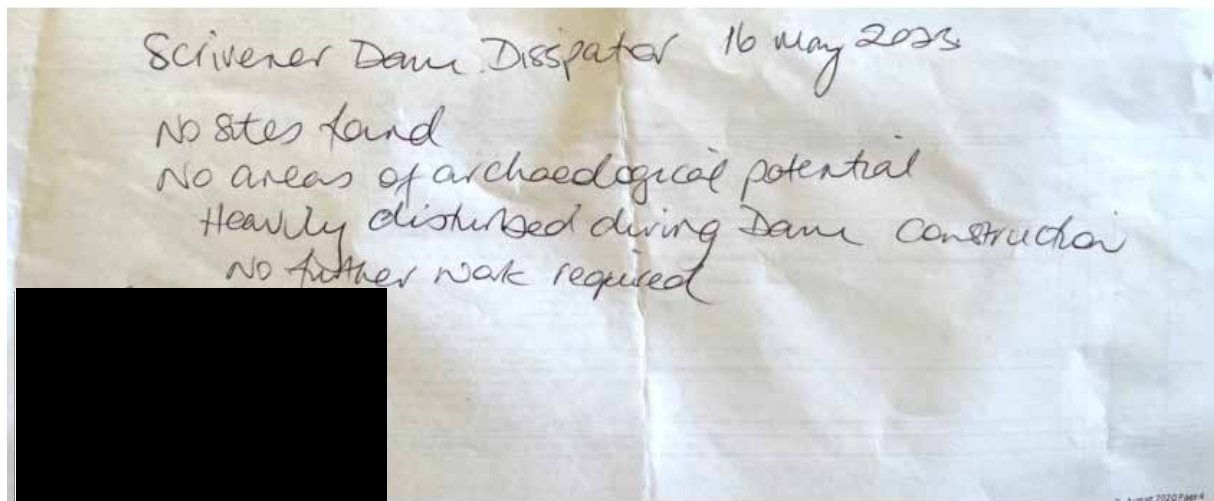 Scrivener Dam Disspator 16 May 2023
No sites found
No areas of archaeological potential
Heavily disturbed during Dam construction
No further work required
2020 Page 4